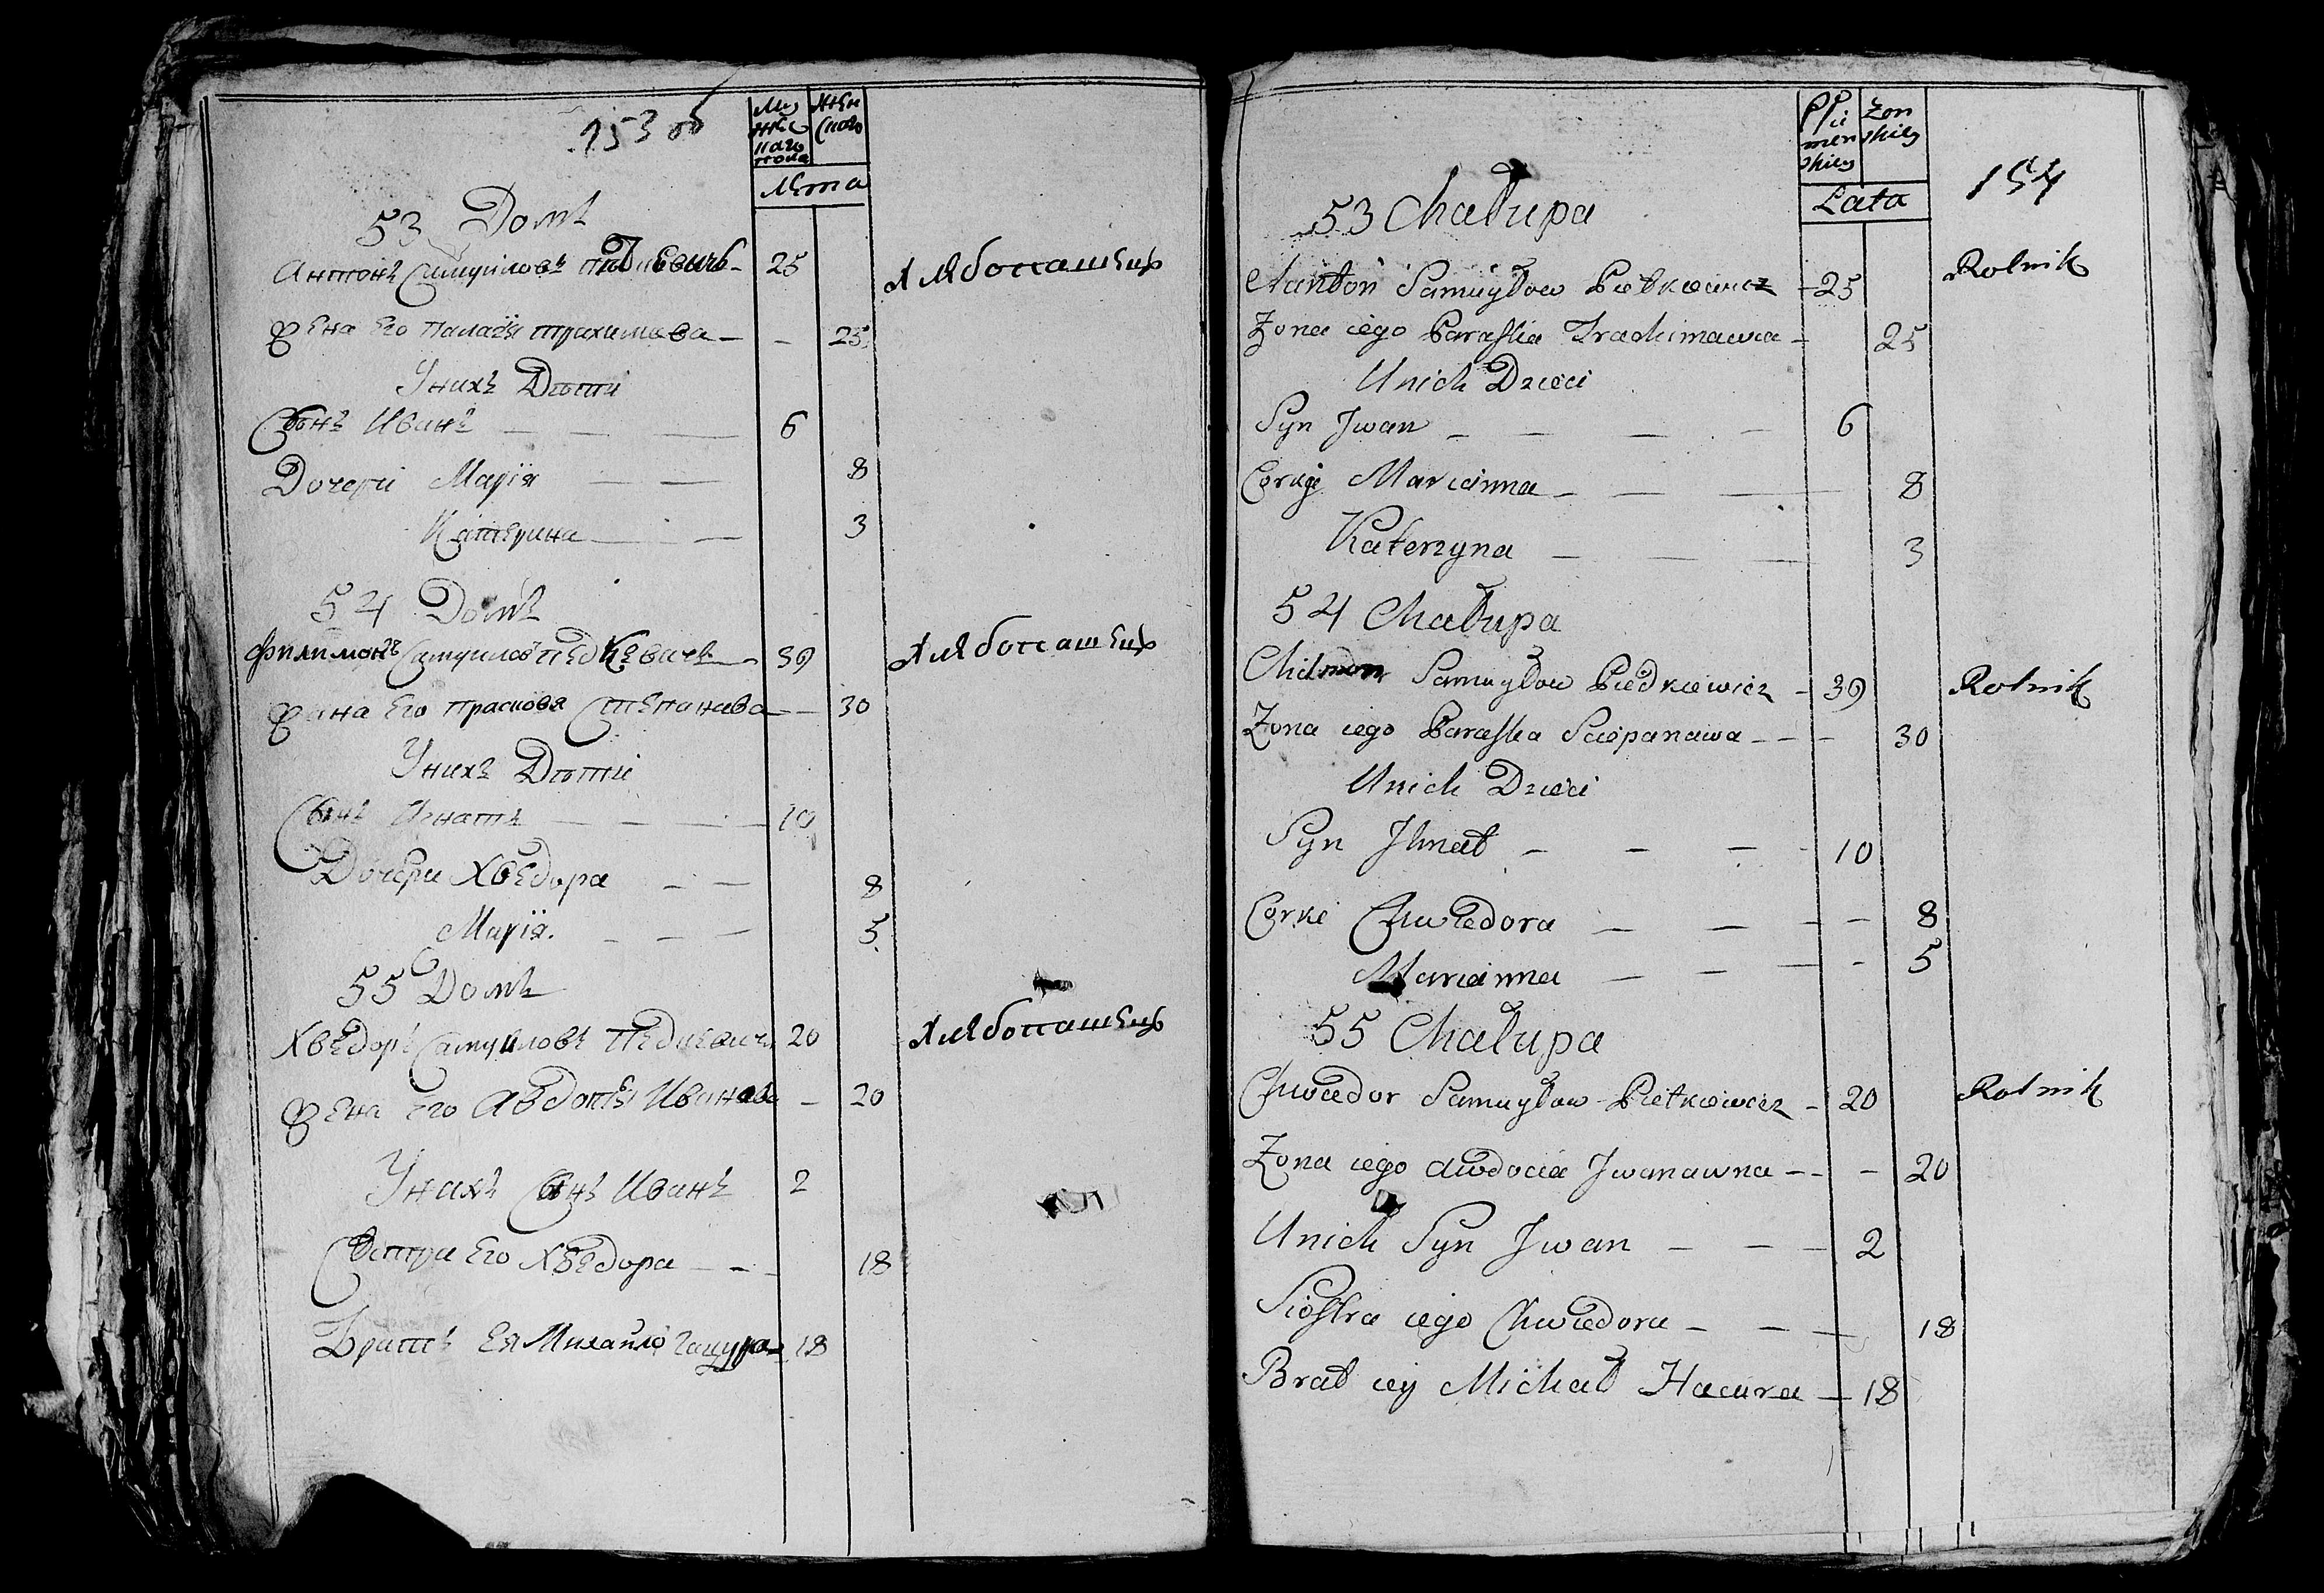 153 об
Му
жес
каго
пола
Жен
скаго
Лета
53 Домъ
Антонъ Самуиловъ Педкевичъ - 25
Хлебопашецъ
Жена Его Палагея Трахимава - - 25
У нихъ Дѣти
Сынъ Иванъ - - - 6
Дочери Марія - - 8
Катерина - - 3
54 Домъ
Филимонъ Самуиловъ Педкевичъ - 39
Хлебопашецъ
Жена Его Прасковя Степанава - - 30
У нихъ Дѣти
Сынъ Игнатъ - - - - 10
Дочери Хведора - - 8
Марія. - - - 5
55 Домъ
Хведоръ Самуиловъ Педкевичъ 20
Хлебопашецъ
Жена Его Авдотея Иванава - 20
У нихъ Сынъ Иванъ 2
Сестра Его Хведора - - - 18
Братъ Ея Михайло Гацура - 18
men
skiey
Żen
skiey
Lata
154
53 Chałupa
Aanton Samuyłow Pietkiewicz - 25
Rolnik
Żona iego Paraska Trachimawa - 25
Unich Dzieci
Syn Jwan - - - - 6
Corki Marianna - - - 8
Katerzyna - - - 3
54 Chałupa
Chilimon Samuyłow Piedkiewicz - 39
Rolnik
Żona iego Paraska Sciepanawa - - - 30
Unich Dzieci
Syn Jhnat - - - - 10
Corki Chwiedora - - - - 8
Marianna - - - - 5
55 Chałupa
Chwiedor Samuyłow Pietkiewicz - 20
Rolnik
Żona iego Awdocia Jwanawna - - - 20
Unich Syn Jwan - - - 2
Siostra iego Chwiedora - - - 18
Brat iey Michał Hacura - 18